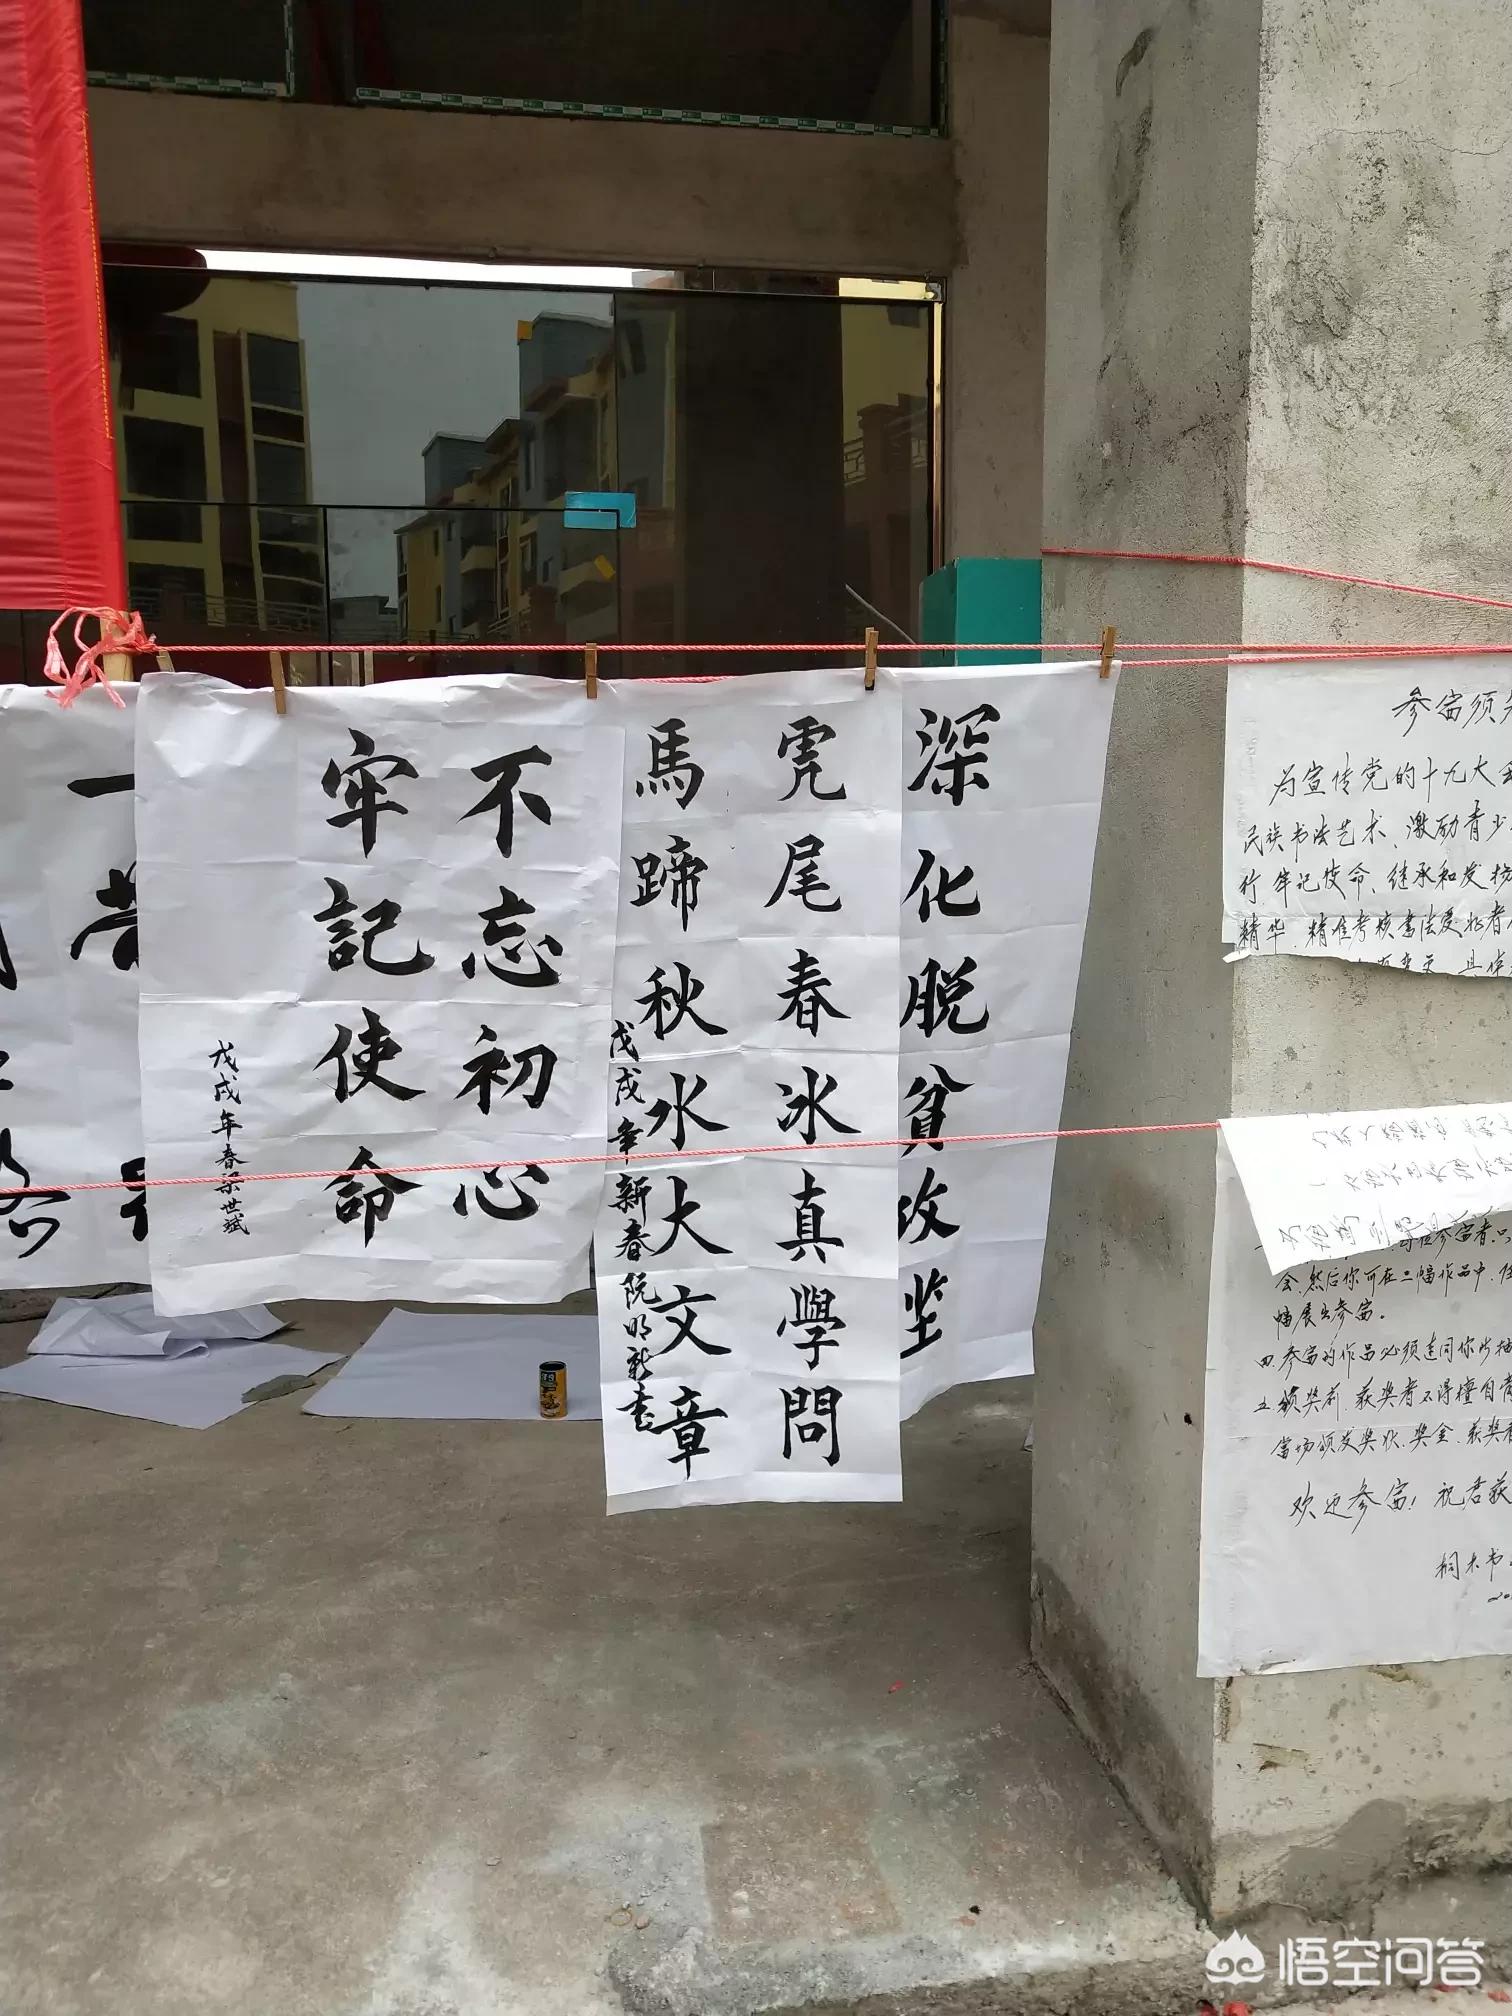 深化脱貧攻坚
虎尾春冰真學問
馬蹄秋水大文章
戊戌年新春阮明新書
不忘初心
牢記使命
戊戌年春梁世斌
参赛须
为宣传党的十九大
民族书法艺术、激励青少
行.牢记使命、继承和发扬
精华.精准考核書法爱好者
参赛者.只
会.然后你可在三幅作品中.任
幅展出参赛。
四.参赛的作品必须连同你所抽
五.颁奖前.获奖者不得擅自
當场颁发奖状.奖金.获奖
欢迎参赛!祝君获
桐木书
悟空问答